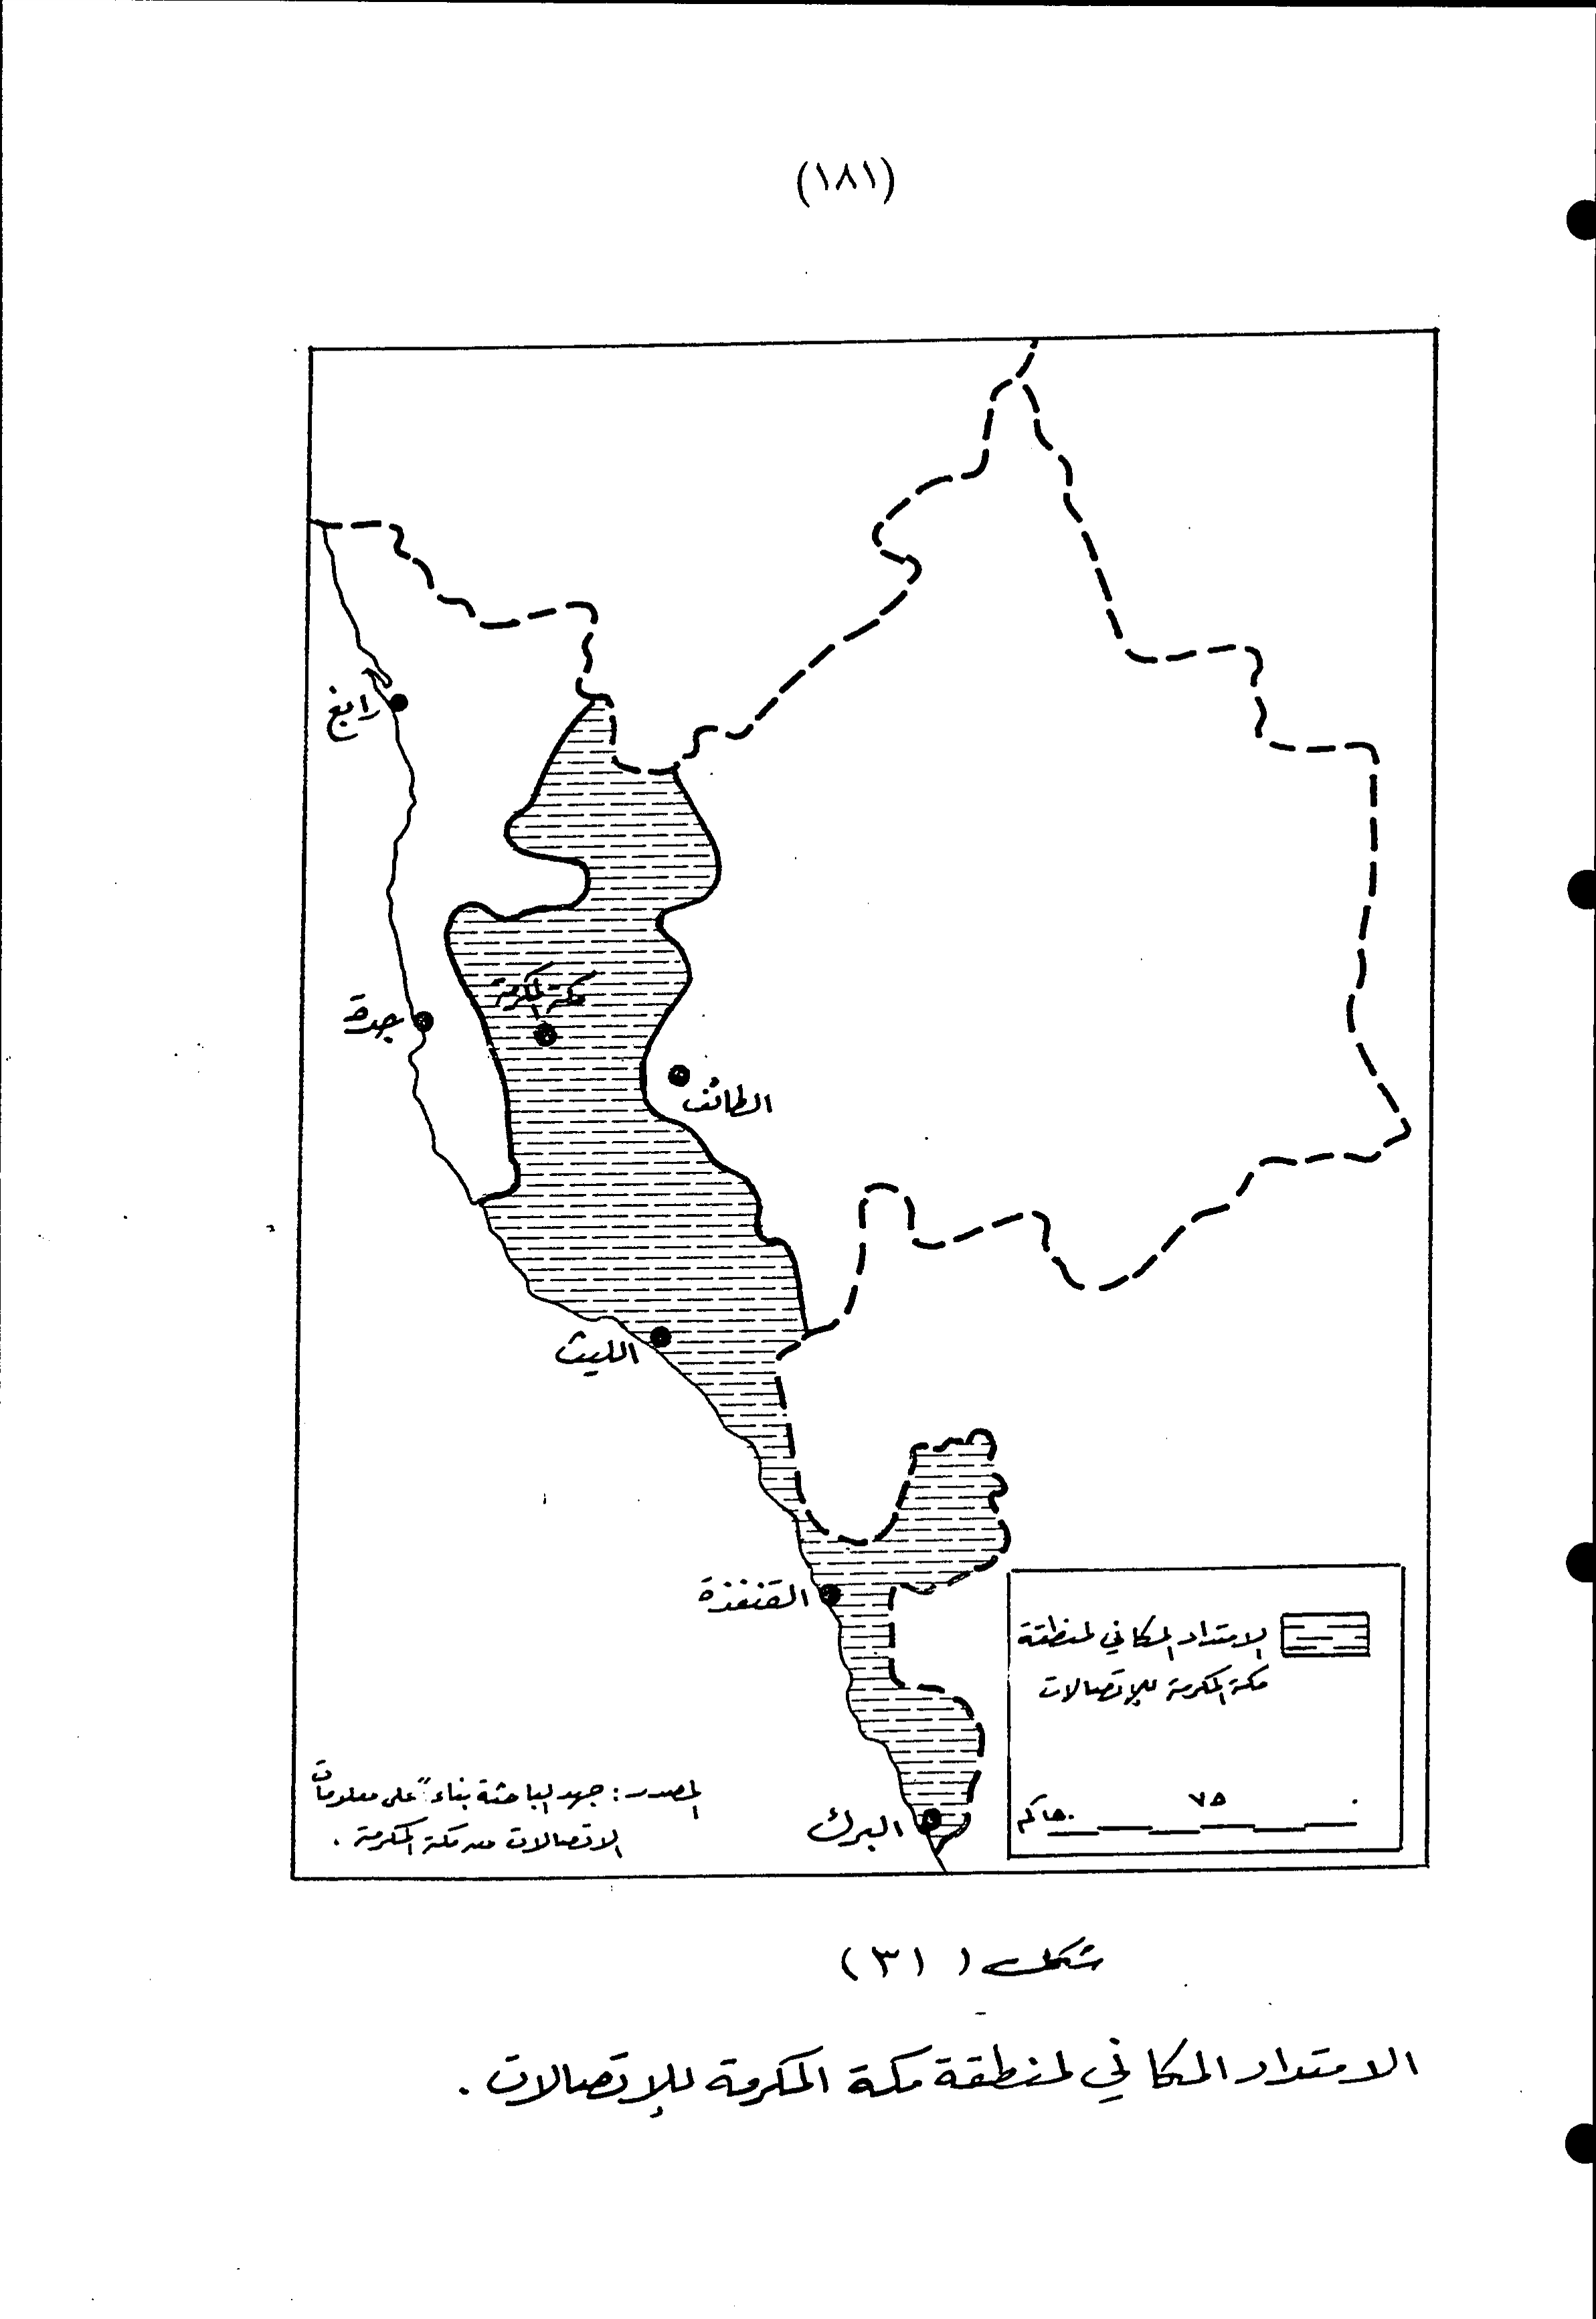 (١٨١)
رابغ
مكة المكرمة
جدة
الطائف
الليث
القنفذة
البرك
الامتداد المكاني لمنطقة
مكة المكرمة للإتصالات
٧٥
المصدر : جهد الباحثة بناءً على معلومات
الاتصالات مكة المكرمة .
شكل ( ٣١ )
الامتداد المكاني لمنطقة مكة المكرمة للإتصالات .